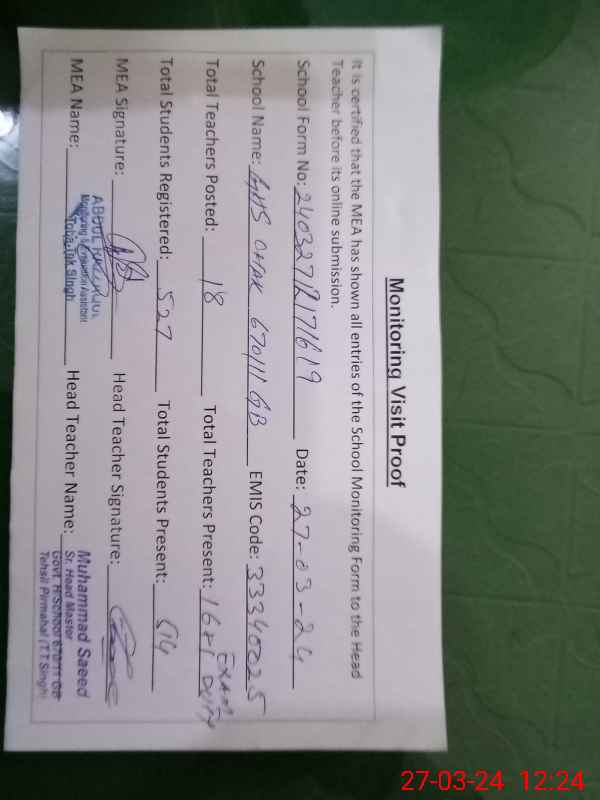 Monitoring Visit Proof
It is certified that the MEA has shown all entries of the School Monitoring Form to the Head
Teacher before its online submission.
School Form No: 24032712171619 Date: 27-03-24
School Name: GHS CHAK 670/11 GB EMIS Code: 33340025
Total Teachers Posted: 18 Total Teachers Present: 16+1 EXAM DUTY
Total Students Registered: 527 Total Students Present: 514
MEA Signature: Head Teacher Signature:
ABDUL
Monitoring & Evaluation Assistant
Toba Tek Singh
MEA Name: Head Teacher Name:
Muhammad Saeed
Sr. Head Master
Govt. H/School 670/11 GB
Tehsil Pirmahal (T.T Singh)
27-03-24 12:24